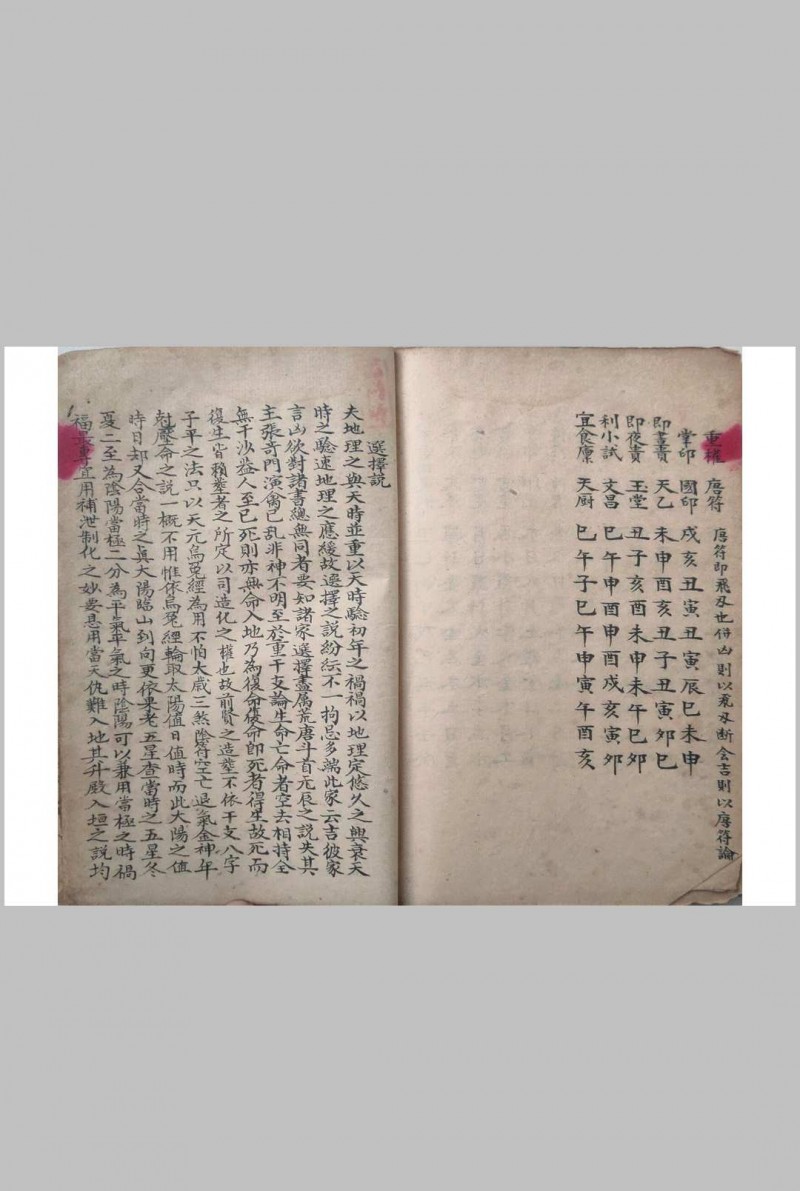 重權 唐符 唐符即飛刃也併凶則以飛刃斷会吉則以唐符論
掌印 國印 戌亥丑寅丑寅辰巳未申
即晝貴 天乙 未申酉亥丑子丑寅夘巳
即夜貴 玉堂 丑子亥酉未申未午巳夘
利小試 文昌 巳午申酉申酉戌亥寅夘
宜食廪 天厨 巳午子巳午申寅午酉亥
選擇説
夫地理之與天時並重以天時驗初年之禍福以地理定悠久之興衰天
時之驗速地理之應緩故選擇之説紛紜不一拘忌多端此家云吉彼家
言凶欲對諸書總無同者要知諸家選擇盡属荒唐斗首元辰之説失其
主張奇門演禽已乱非神不明至於重干支論生命亡命者空去相持全
無干涉益人至已死則亦無命入地乃為復命復命即死者得生故死而
復生皆賴塟者之所定以司造化之權也故前賢之造塟不依干支八字
子平之法只以天元烏兔經為用不怕太歲三煞陰符空亡退氣金神年
尅壓命之説一概不用惟依烏兔經輪取太陽值日值時而此太陽之值
時日却又合當時之眞太陽臨山到向更依果老五星查當時之五星冬
夏二至為陰陽當極二分為平氣平氣之時陰陽可以兼用當極之時禍
福最重宜用補泄制化之妙要恩用當天仇難入地其升殿入垣之説均